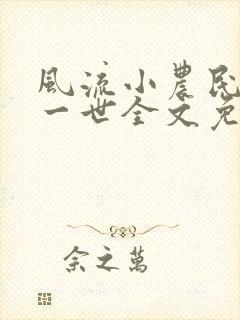 風流小農民
一世全文免
余之萬